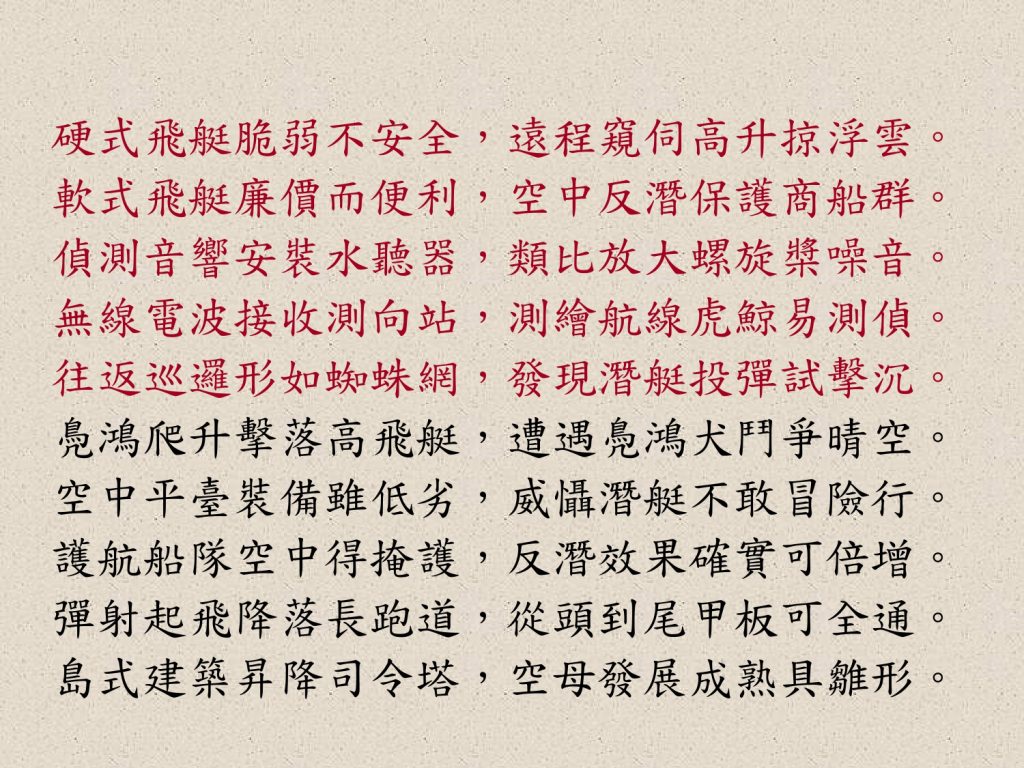 硬式飛艇脆弱不安全，遠程窺伺高升掠浮雲。
軟式飛艇廉價而便利，空中反潛保護商船群。
偵測音響安裝水聽器，類比放大螺旋槳噪音。
無線電波接收測向站，測繪航線虎鯨易測偵。
往返巡邏形如蜘蛛網，發現潛艇投彈試擊沉。
鳧鴻爬升擊落高飛艇，遭遇鳧鴻犬鬥爭晴空。
空中平臺裝備雖低劣，威懾潛艇不敢冒險行。
護航船隊空中得掩護，反潛效果確實可倍增。
彈射起飛降落長跑道，從頭到尾甲板可全通。
島式建築昇降司令塔，空母發展成熟具雛形。